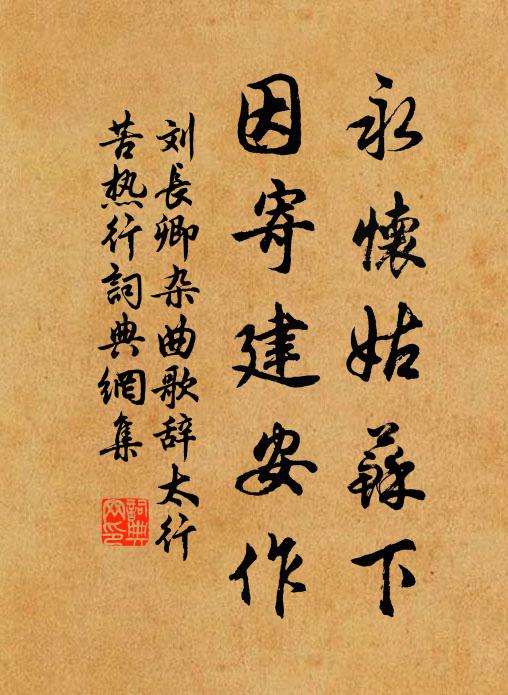 永懷姑蘇下
因寄建安作
刘長卿杂曲歌辞太行
苦热行詞典網集
詞典
网印